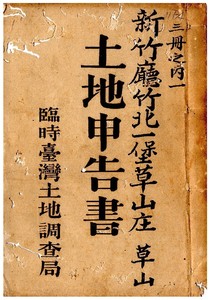 三冊之內一
新竹廳竹北一堡草山庄 草山
土地申告書
臨時臺灣土地調查局